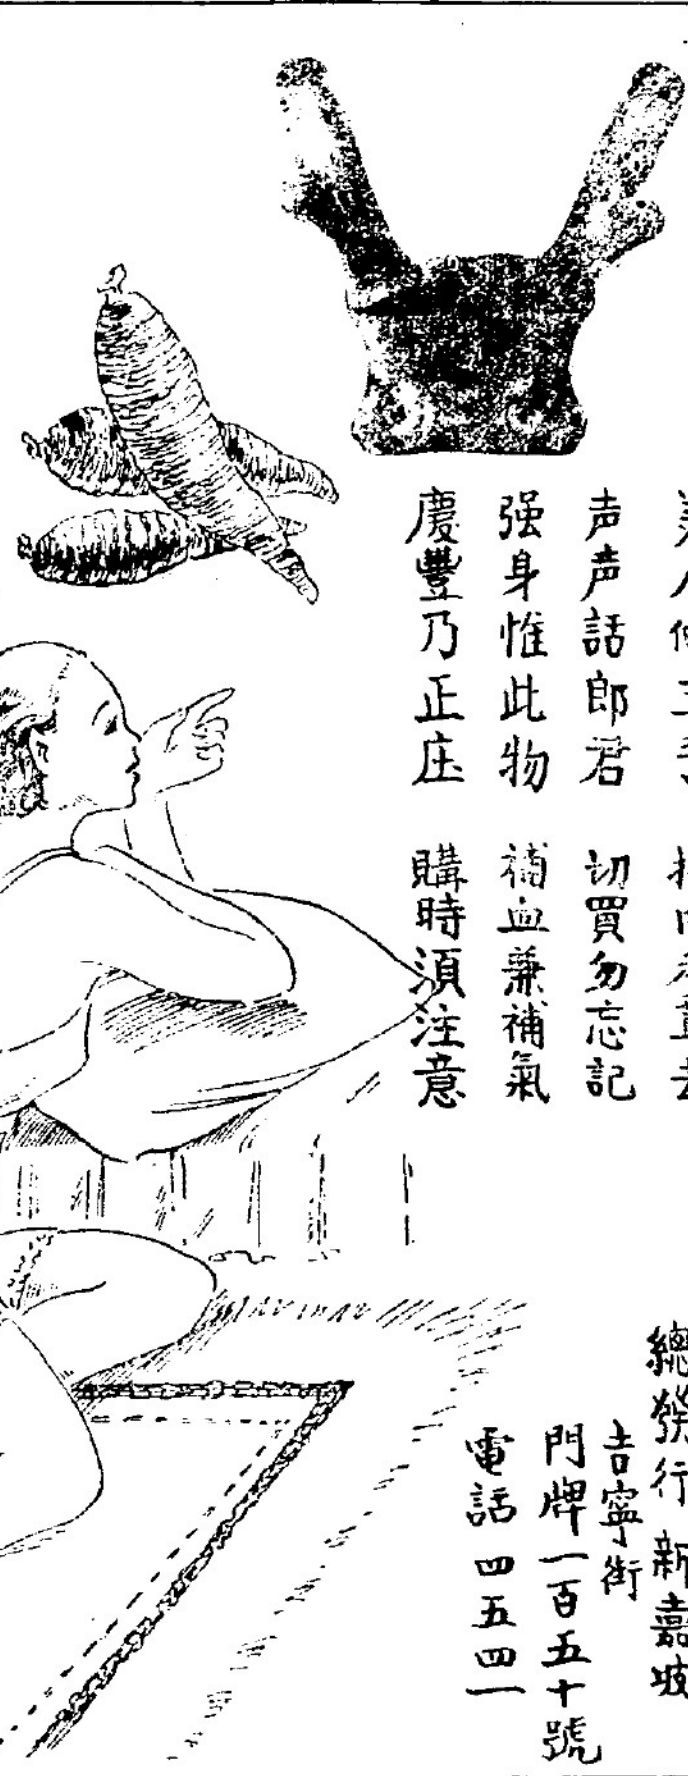 声声話郎君 切買勿忘記
强身惟此物 補血兼補氣
慶豐乃正庄 購時湏注意
總發行 新嘉坡
吉寧街
門牌一百五十號
電話 四五四一